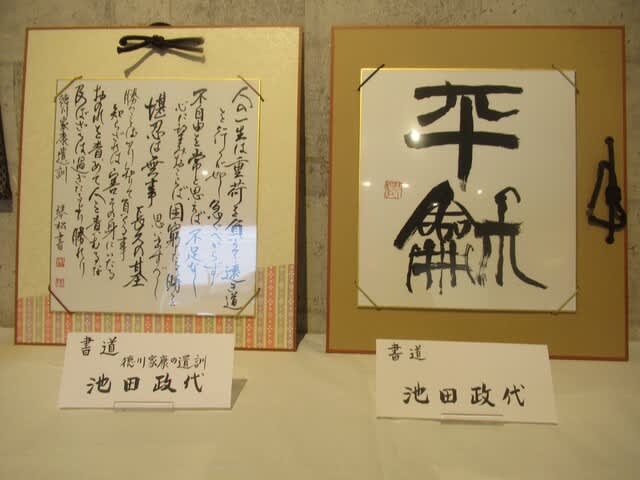 人の一生は重荷を負うて遠き道
を行くが如し 急ぐべからず
不自由を常と思えば 不足なし
心に望みおこらば 困窮したる時を
思い出すべし
堪忍は無事 長久の基
勝つことばかり知りて負くる事
知らざれば 害その身にいたる
おのれを責めて人を責むるな
及ばざるは過ぎたるより勝れり
徳川家康遺訓
平龢
書道
徳川家康の遺訓
池田政代
書道
池田政代